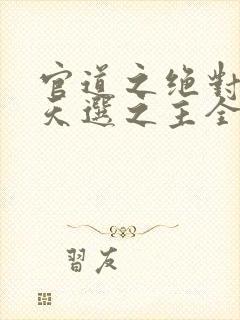 官道之绝對
天選之主全
習友